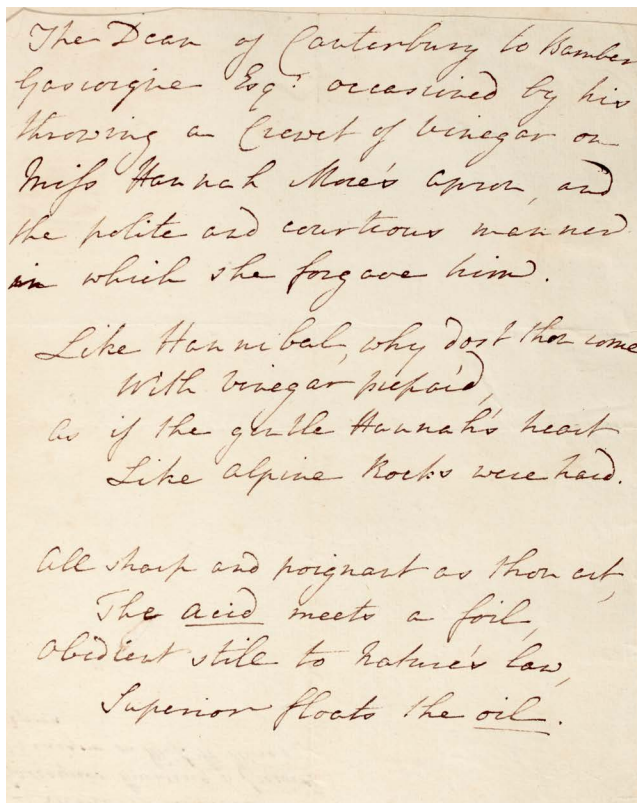 The Dean of Canterbury to Bamber
Gascoigne Esqr. occasioned by his
throwing a Crewet of Vinegar on
Miss Hannah More's apron, and
the polite and courtious manner
in which she forgave him.
Like Hannibal, why dost thou come
With Vinegar prepar'd,
as if the gentle Hannah's heart
Like Alpine Rocks were hard.
All sharp and poignant as thou art,
The acid meets a foil,
Obedient still to Nature's law,
Superior floats the oil.